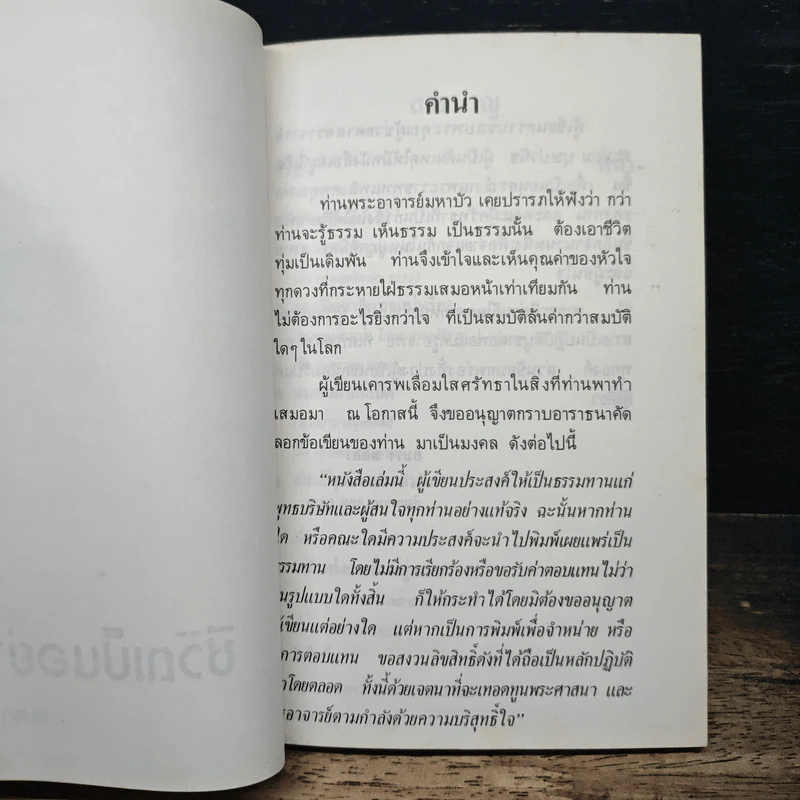 คำนำ
ท่านพระอาจารย์มหาบัว เคยปรารภให้ฟังว่า กว่า
ท่านจะรู้ธรรม เห็นธรรม เป็นธรรมนั้น ต้องเอาชีวิต
ทุ่มเป็นเดิมพัน ท่านจึงเข้าใจและเห็นคุณค่าของหัวใจ
ทุกดวงที่กระหายใฝ่ธรรมเสมอหน้าเท่าเทียมกัน ท่าน
ไม่ต้องการอะไรยิ่งกว่าใจ ที่เป็นสมบัติล้นค่ากว่าสมบัติ
ใดๆ ในโลก
ผู้เขียนเคารพเลื่อมใสศรัทธาในสิ่งที่ท่านพาทำ
เสมอมา ณ โอกาสนี้ จึงขออนุญาตกราบอาราธนาคัด
ลอกข้อเขียนของท่าน มาเป็นมงคล ดังต่อไปนี้
"หนังสือเล่มนี้ ผู้เขียนประสงค์ให้เป็นธรรมทานแก่
พุทธบริษัทและผู้สนใจทุกท่านอย่างแท้จริง ฉะนั้นหากท่าน
ใด หรือคณะใดมีความประสงค์จะนำไปพิมพ์เผยแพร่เป็น
ธรรมทาน โดยไม่มีการเรียกร้องหรือขอรับค่าตอบแทนไม่ว่า
ในรูปแบบใดทั้งสิ้น ก็ให้กระทำได้โดยมิต้องขออนุญาต
ผู้เขียนแต่อย่างใด แต่หากเป็นการพิมพ์เพื่อจำหน่าย หรือ
การตอบแทน ขอสงวนลิขสิทธิ์ดังที่ได้ถือเป็นหลักปฏิบัติ
มาโดยตลอด ทั้งนี้ด้วยเจตนาที่จะเทอดทูนพระศาสนา และ
อาจารย์ตามกำลังด้วยความบริสุทธิ์ใจ"